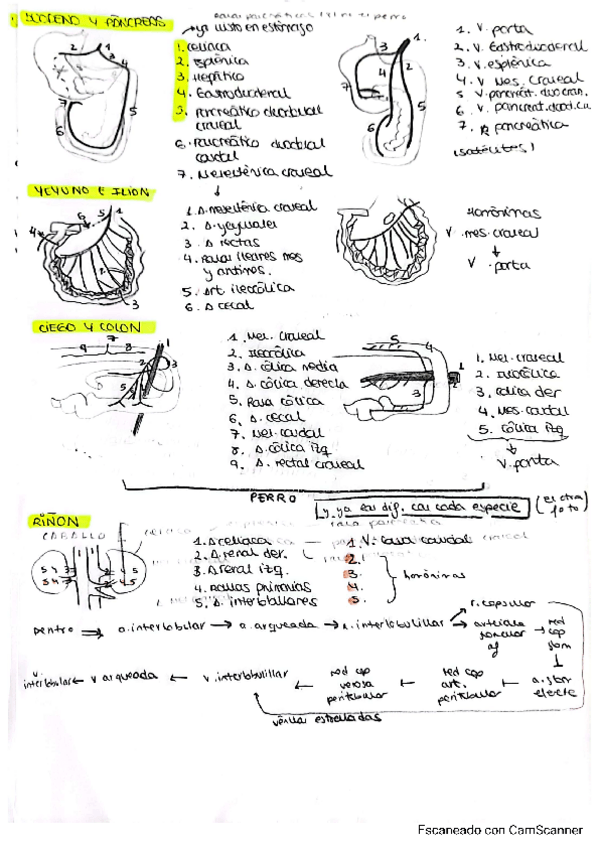 DUODENO Y PÁNCREAS
→ ya visto en estómago
1. celiaca
2. Esplénica
3. Hepática
4. Gastroduodenal
5. Pancreático duodenal craneal
6. Pancreático duodenal caudal
7. Mesentérica craneal
1. V. porta
2. V. Gastroduodenal
3. V. esplénica
4. V. Mes. craneal
5. V. pancreat. duo cran.
6. V. pancreat. duod. ca
7. pancreática
(satélites)
YEYUNO E ILION
1. A. mesentérica craneal
2. A. yeyunales
3. A. rectas
4. Ramas ileares mes y antimes.
5. Art. ileocólica
6. A. cecal
Homónimas
V. mes. craneal
↓
V. porta
CIEGO Y COLON
1. Mes. craneal
2. Ileocólica
3. A. cólica media
4. A. cólica derecha
5. Rama cólica
6. A. cecal
7. Mes. caudal
8. A. cólica izq
9. A. rectal craneal
1. Mes. craneal
2. Ileocólica
3. colica der
4. Mes. caudal
5. cólica izq
↓
V. porta
PERRO
RIÑON
CABALLO
1. A. celiaca
2. A. renal der.
3. A. renal izq.
4. Ramas primarias
5. A. interlobulares
1. V. cava caudal
2.
3.
4.
5.
homónimas
Dentro ⇒ a. interlobular → a. arqueada → a. interlobulillar
r. capsular
arteriola
af
red cap glom
a. glom eferte
red cap art. peritubular
red cap venosa peritubular
v. interlobulillar
v arqueada
v. interlobular
vénulas estrelladas
Escaneado con CamScanner